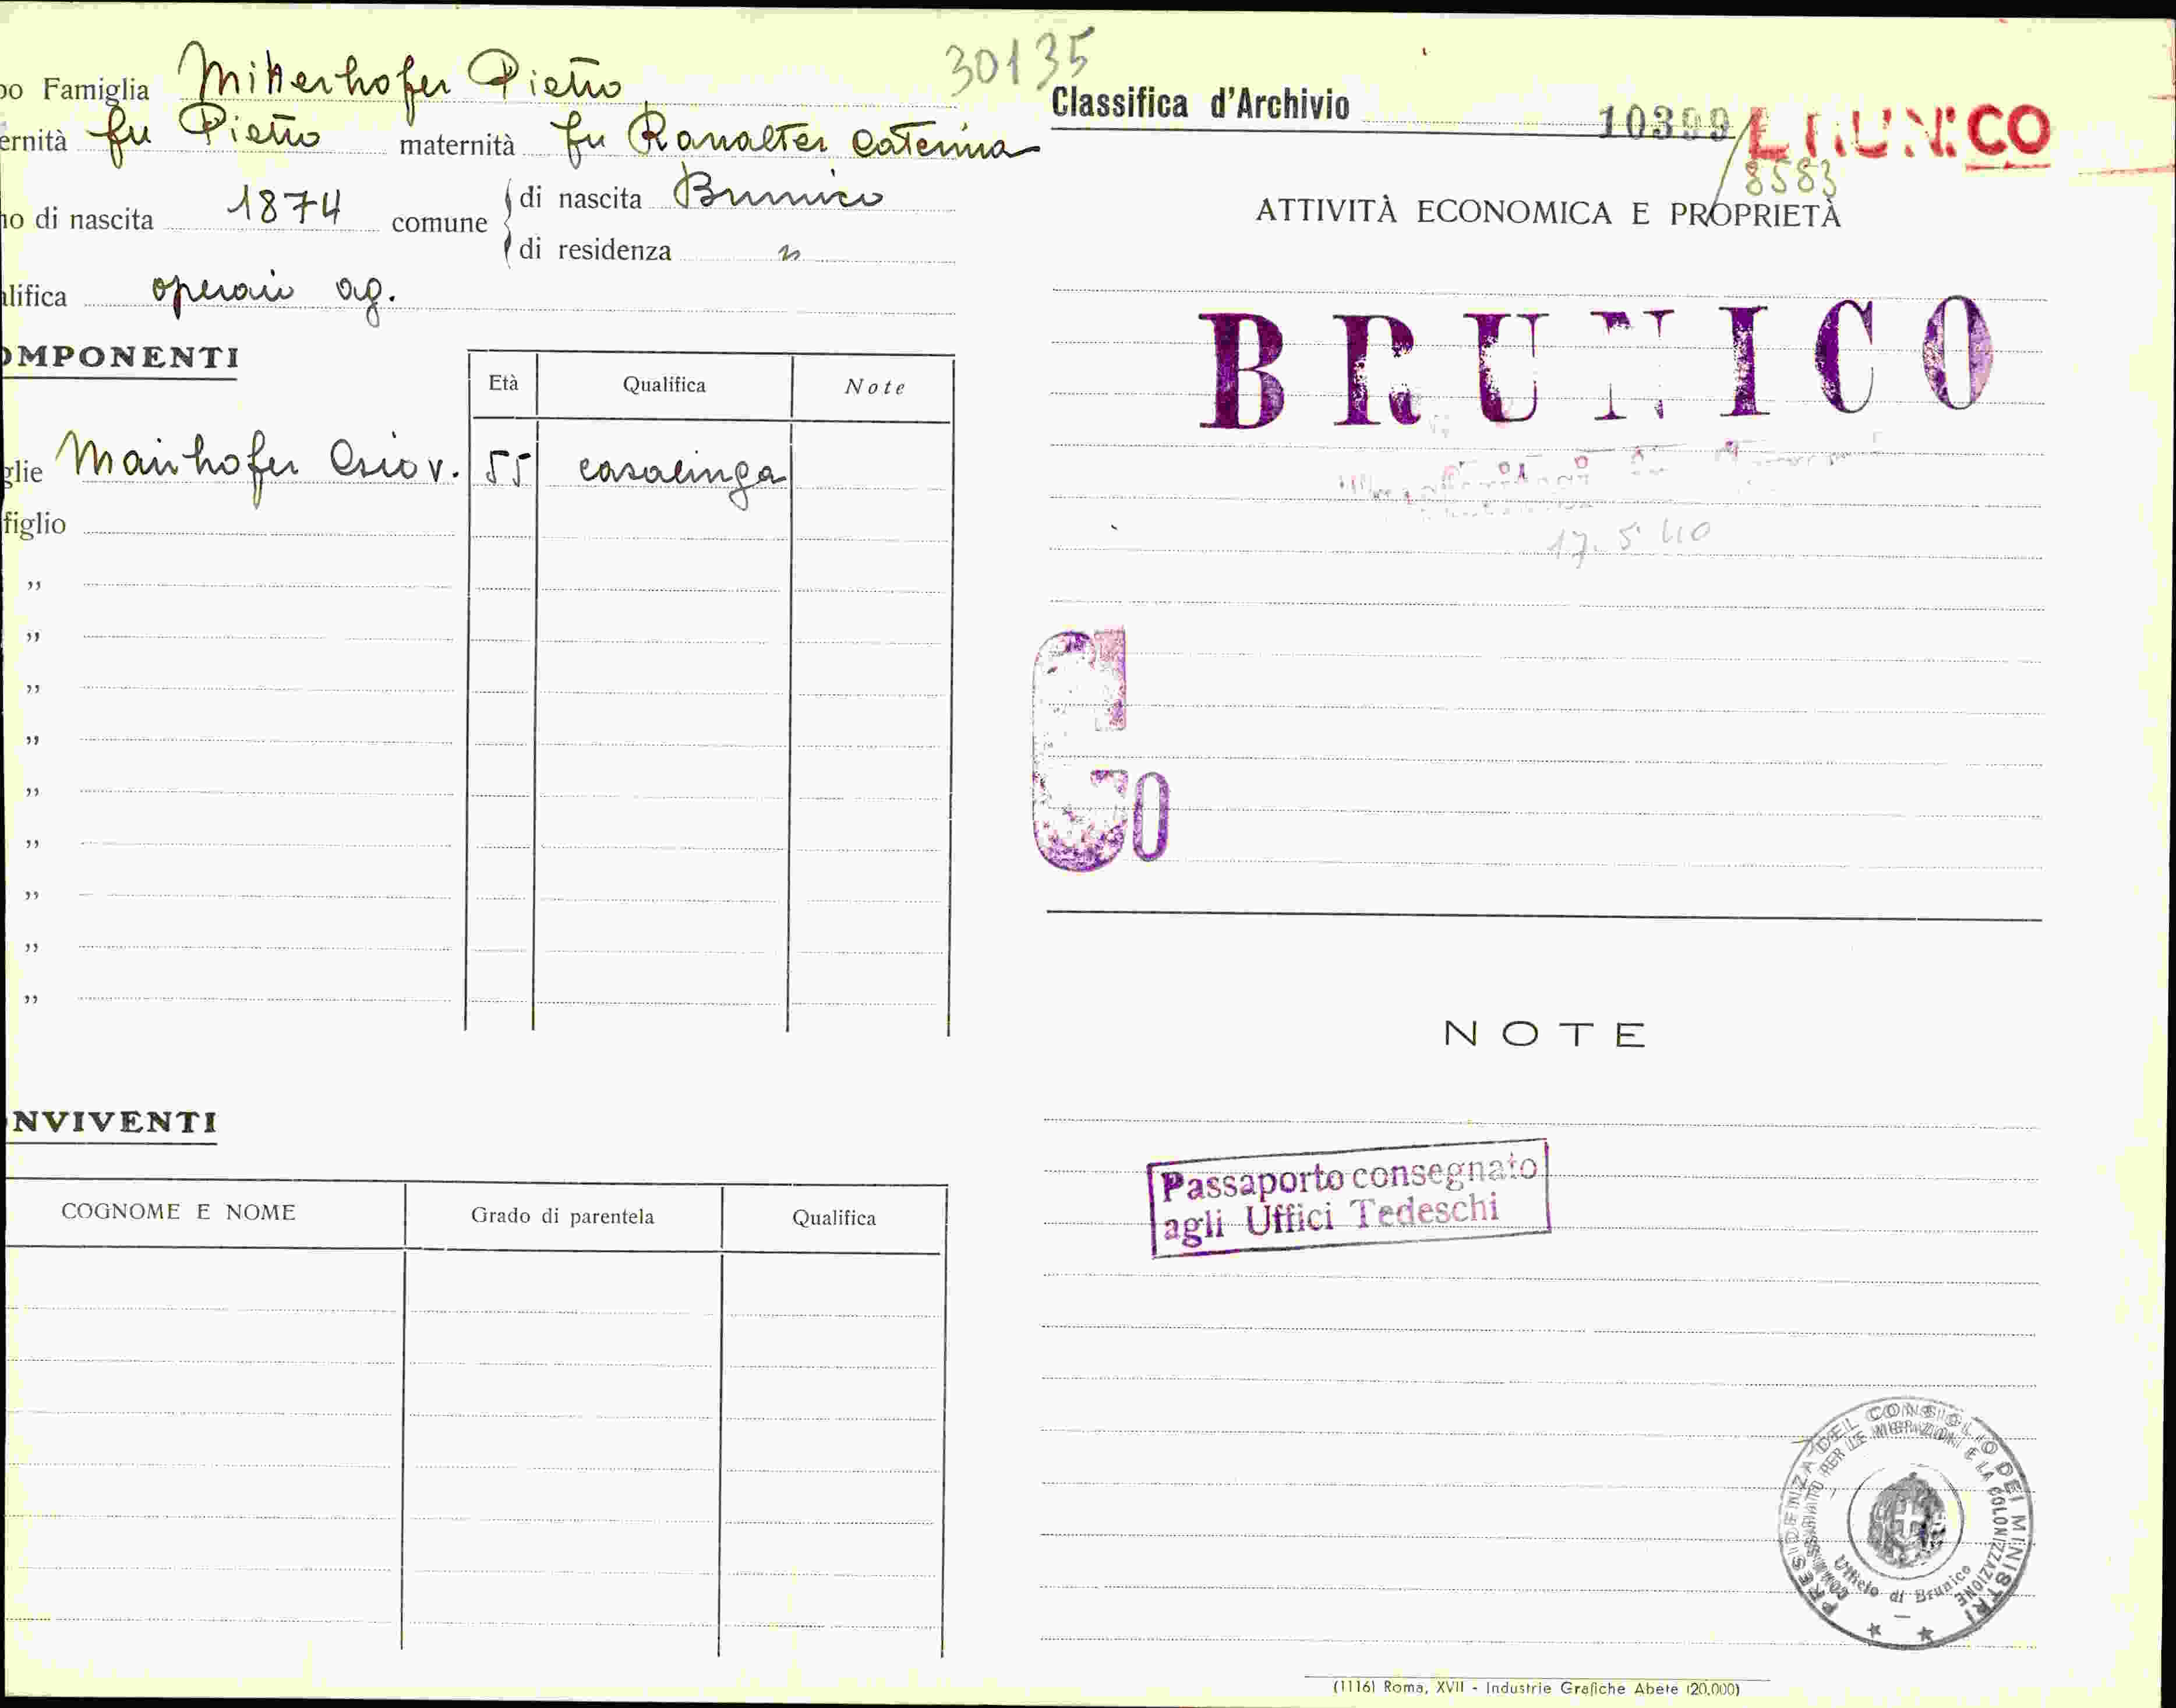 po Famiglia Mitterhofer Pietro
ernità fu Pietro maternità fu Ranalter Caterina
no di nascita 1874 comune di nascita Brunico
di residenza "
alifica operaio ag.
OMPONENTI
Età Qualifica Note
glie Mairhofer 55 casalinga
figlio
"
"
"
"
"
"
"
"
"
NVIVENTI
COGNOME E NOME Grado di parentela Qualifica
30135
Classifica d'Archivio 10399/ BRUNICO
8583
ATTIVITÀ ECONOMICA E PROPRIETÀ
BRUNICO
17.5 40
G
0
NOTE
Passaporto consegnato
agli Uffici Tedeschi
PRESIDENZA DEL CONSIGLIO DEI MINISTRI
COMMISSARIATO PER LE MIGRAZIONI E LA COLONIZZAZIONE
Ufficio di Brunico
(1116) Roma, XVII - Industrie Grafiche Abete (20.000)